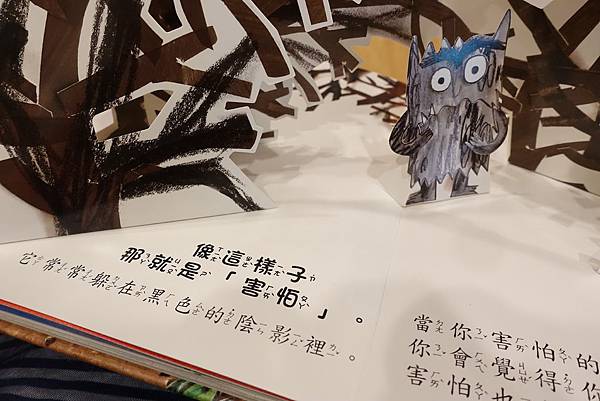 像這樣子
那就是「害怕」。
它常常躲在黑色的陰影裡。
當你害怕的
你會覺得你
害怕也